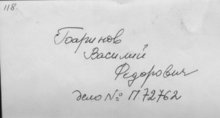 118.
Гаринов
Василий
Федорович
дело № П72762